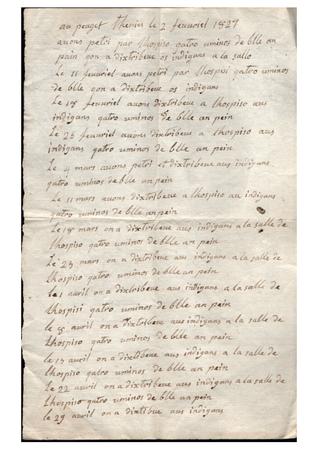 au peaget Thenis le 2 feuvriel 1827
auons petri par lhospiso qatro uminos de blle an
pain qon a dixtribeue os indigans a la sallo
Le 11 feuvriel auons petri par lhospisi qatro uminos
de blle qon a dixtribeue os indigans
Le 18 feuvriel auons dixtribeue a lhospiso aus
indigans qatro uminos de blle an pein
Le 25 feuvriel auons dixtribeue a lhospiso aus
indigans qatro uminos de blle an pein
Le 4 mars auons petri et dixtribeue aus indigans
qatro uminos de blle an pein
Le 11 mars auons dixtribeue a lhospiso au indigans
qatro uminos de blle an pein
Le 18 mars on a dixtribeue aus indigans a la salle de
lhospiso qatro uminos de blle an pein
Le 25 mars on a dixtribeue aus indigans a la salle de
lhospiso qatro uminos de blle an pein
Le 1 auril on a dixtribeue aus indigans a la salle de
lhospisi qatro uminos de blle an pein
le 8 auril on a dixtribeue aus indigans a la salle de
lhospiso qatro uminos de blle an pein
le 15 auril on a dixtibeue aus indigans a la salle de
lhospiso qatro uminos de blle an pein
Le 22 auril on a dixtribeue aus indigans a la salle de
Lhospiso qatro uminos de blle an pein
le 29 auril on a dixtibue aus indigans